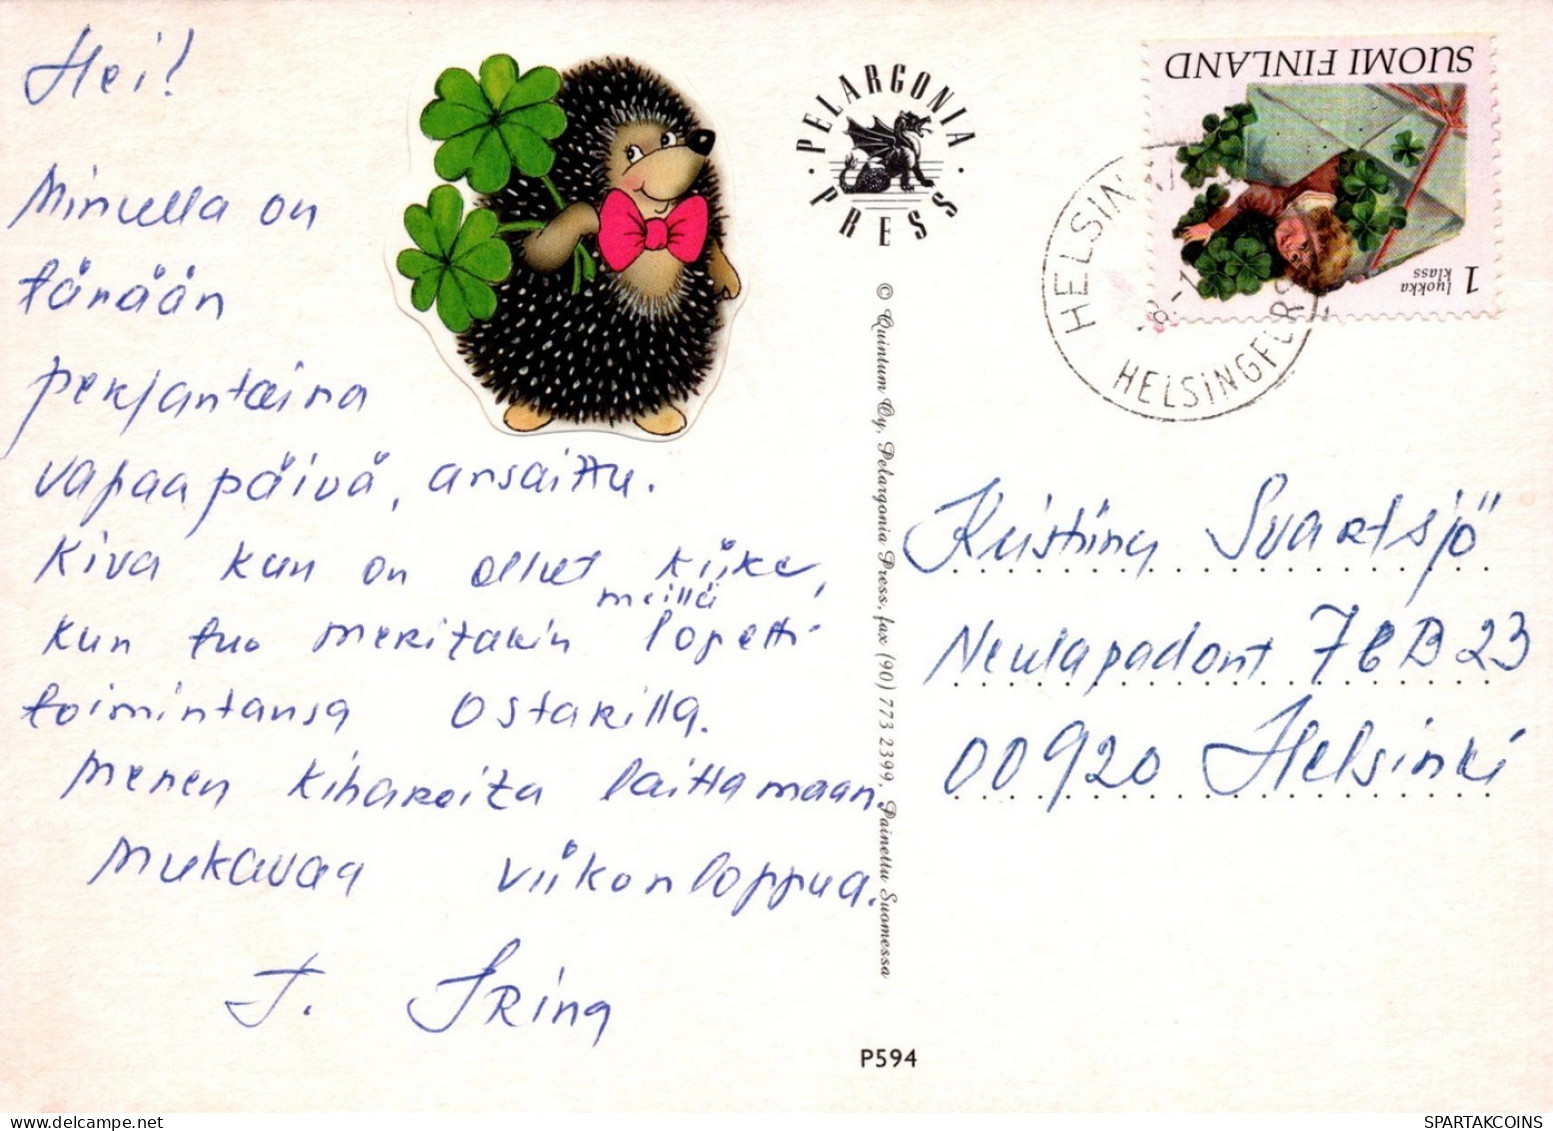 Hei!
Minulla on
tänään
perjantaina
vapaapäivä, ansaittu.
Kiva kun on ollut kiire,
meillä
kun tuo Meritakin lopetti
toimintansa Ostarilla.
Menen kiharoita laittamaan
Mukavaa viikonloppua.
T. Irina
PELARGONIA
PRESS
© Quintum Oy, Pelargonia Press, fax (90) 773 2399, Painettu Suomessa
P594
SUOMI FINLAND
1 luokka
klass
HELSIN
HELSINGFORS
Kristiina Svartsjö
Neulapadont 7 B 23
00920 Helsinki
SPARTAKCOINS